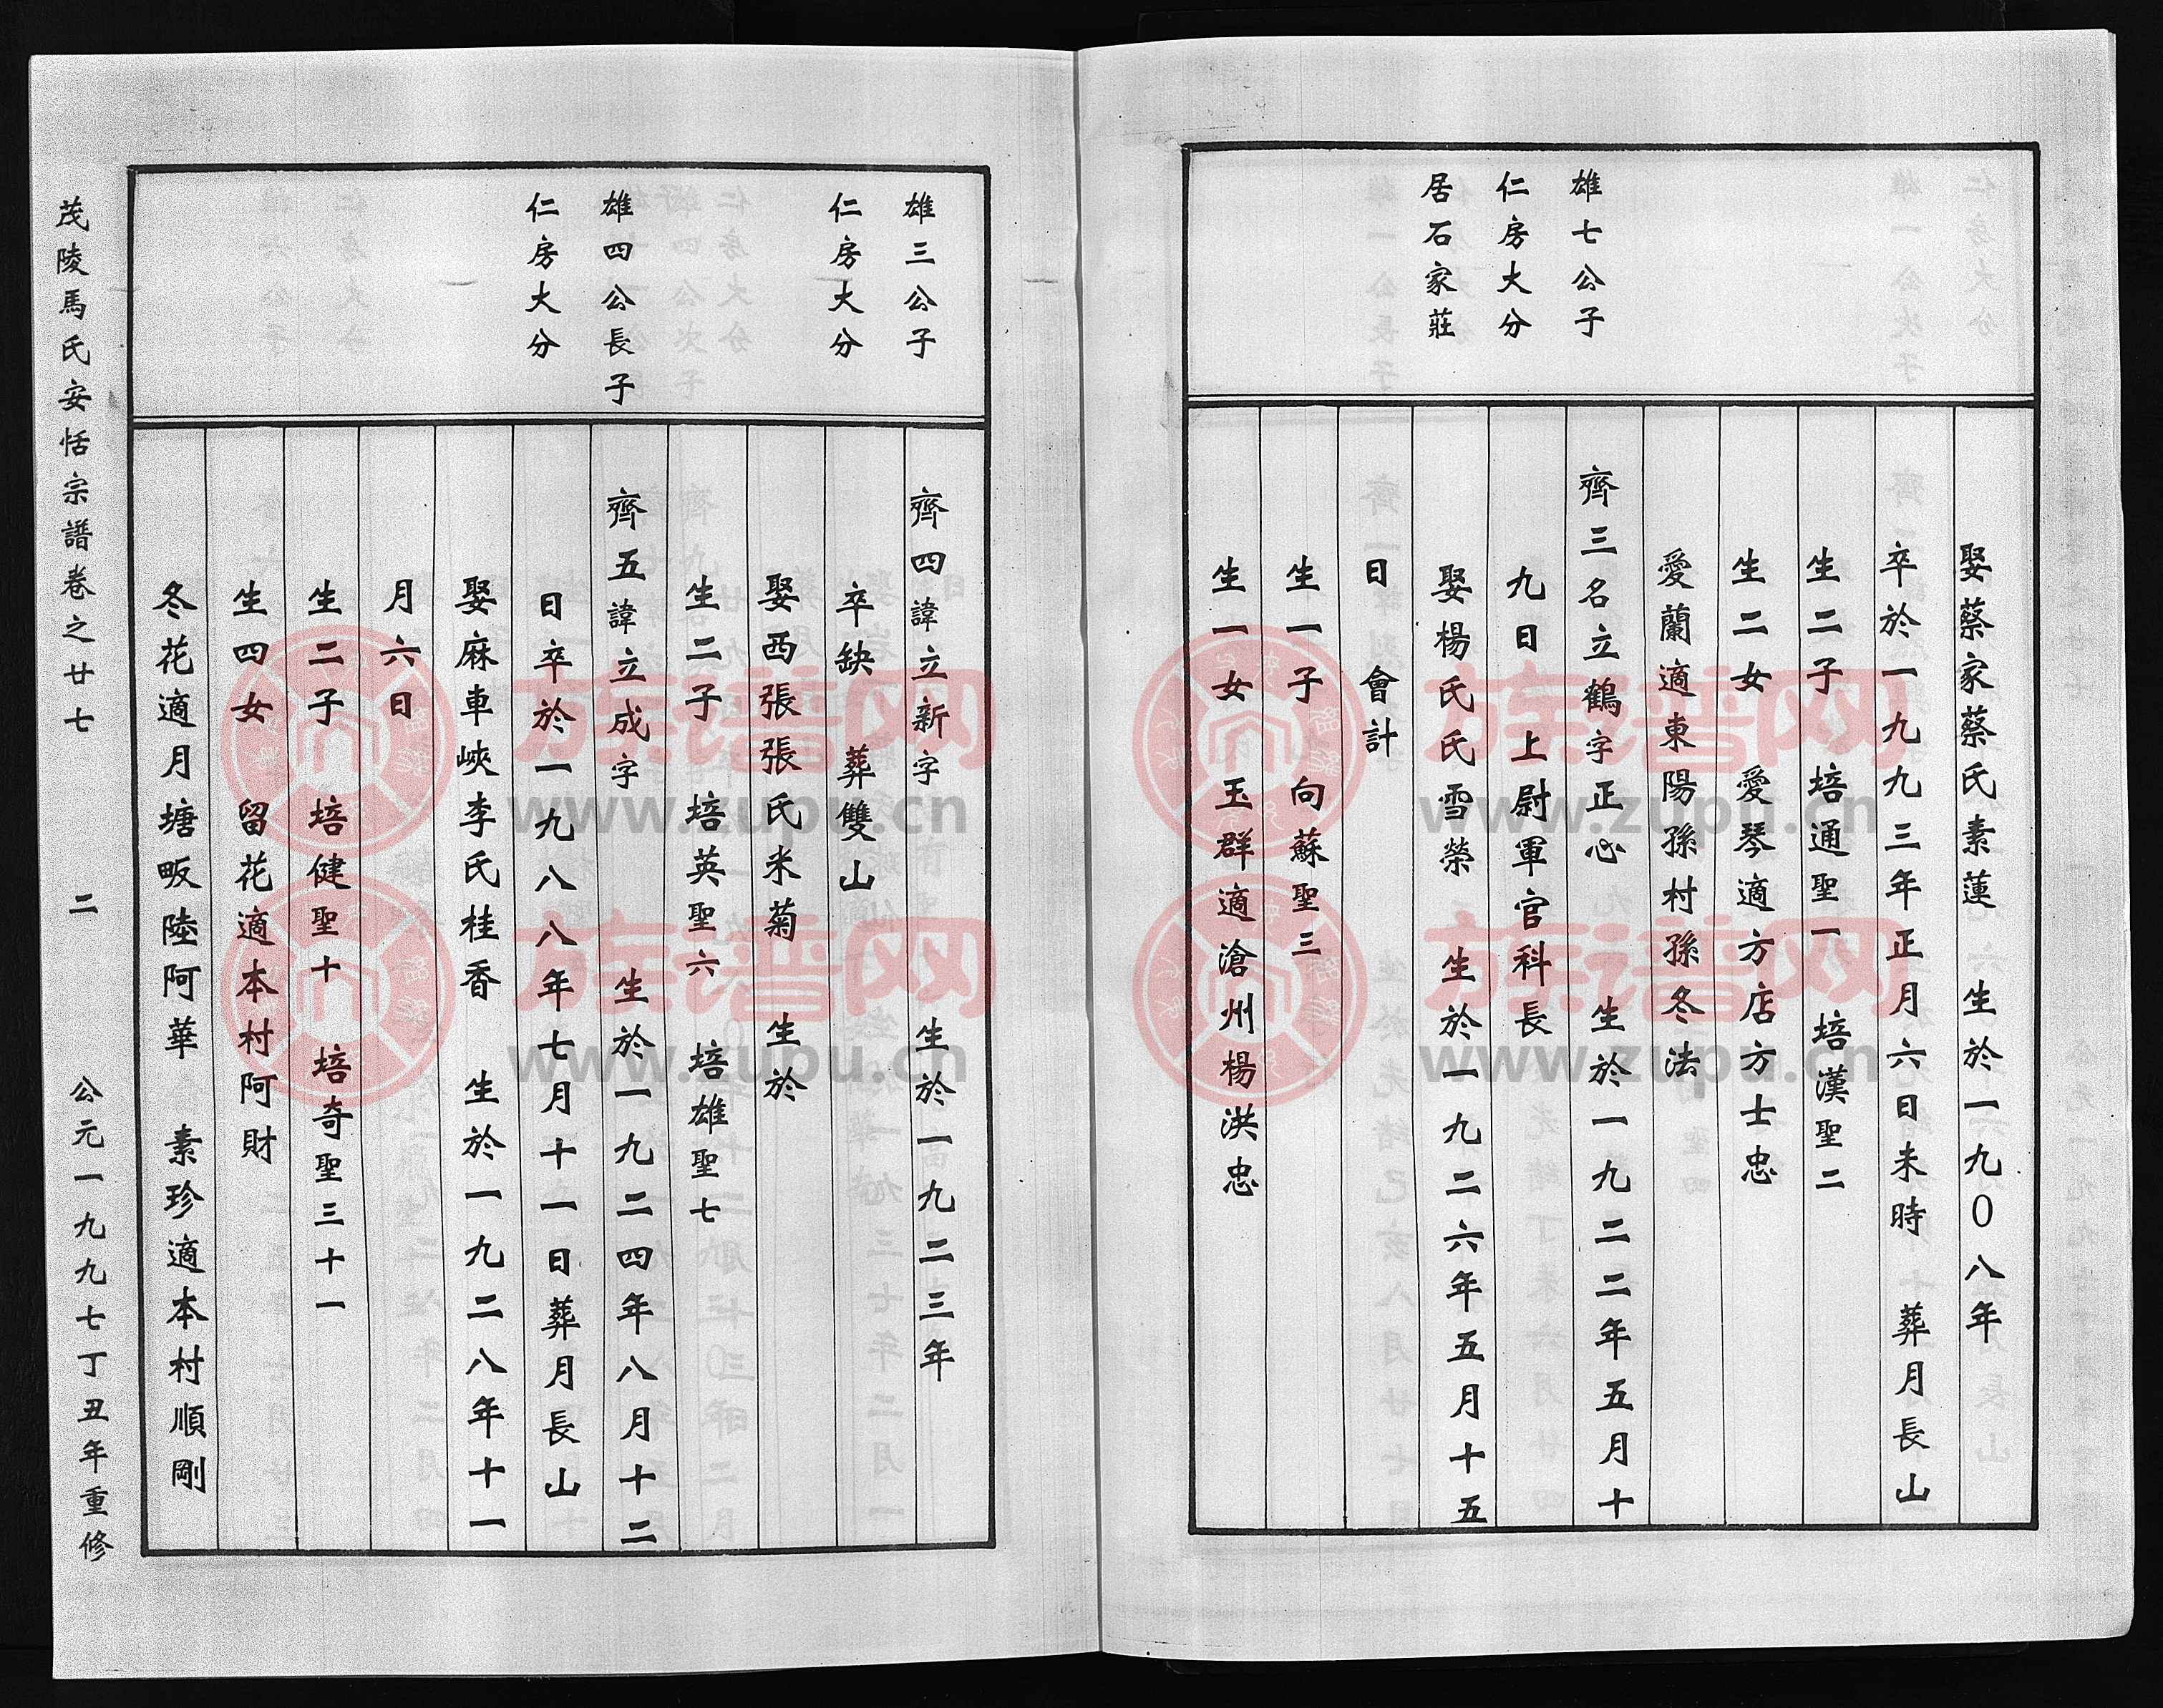 娶蔡家蔡氏素蓮　生於一九〇八年
卒於一九九三年正月六日未時　葬月長山
生二子　培通聖一　培漢聖二
生二女　愛琴適方店方士忠
愛蘭適東陽孫村孫冬法
雄七公子
齊三名立鶴字正心　生於一九二二年五月十
仁房大分
九日　上尉軍官科長
居石家莊
娶楊氏氏雪榮　生於一九二六年五月十五
日　會計
生一子　向蘇聖三
生一女　玉群適滄州楊洪忠
雄三公子
齊四諱立新字　生於一九二三年
仁房大分
卒缺　葬雙山
娶西張張氏米菊　生於
生二子　培英聖六　培雄聖七
雄四公長子
齊五諱立成字　生於一九二四年八月十二
仁房大分
日卒於一九八八年七月十一日葬月長山
娶麻車峽李氏桂香　生於一九二八年十一
月六日
生二子　培健聖十　培奇聖三十一
生四女　留花適本村阿財
冬花適月塘畈陸阿華　素珍適本村順剛
茂陵馬氏安恬宗譜卷之廿七　二　公元一九九七丁丑年重修
族谱网
www.zupu.cn
族谱网
www.zupu.cn
族谱网
www.zupu.cn
族谱网
www.zupu.cn